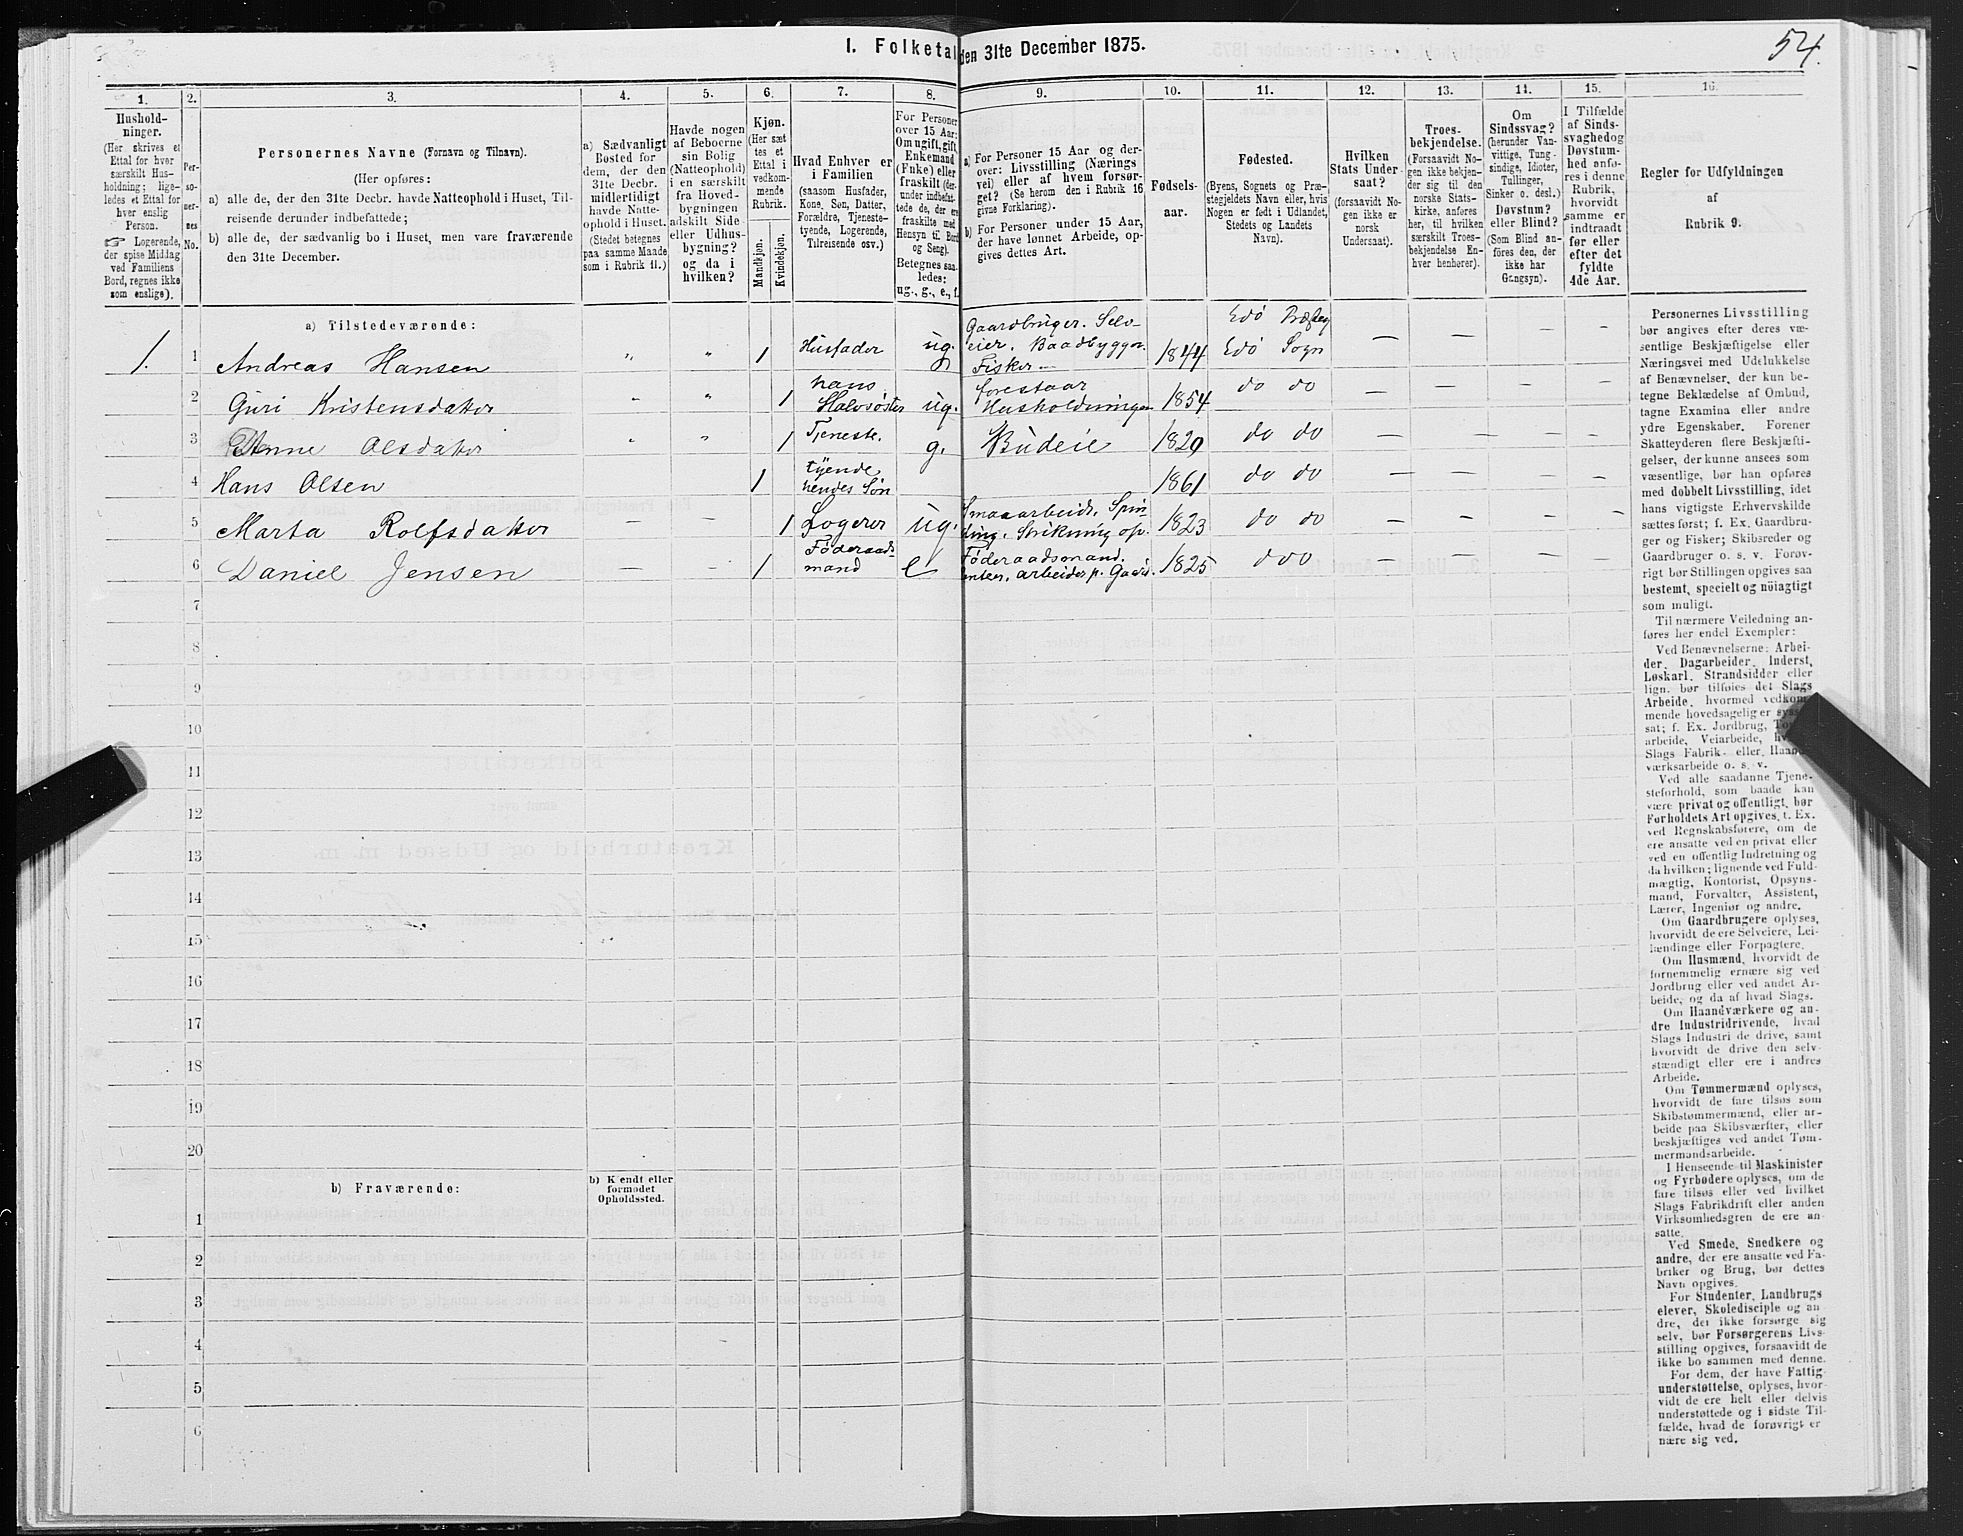 I. Folketal den 31te December 1875.
54.
1.
2.
3.
4.
5.
6.
7.
8.
9.
10.
11.
12.
13.
14.
15.
16.
Hushold-
ninger.
(Her skrives et
Ettal for hver
særskilt Hus-
holdning; lige-
ledes et Ettal for
hver enslig
Person.
☞ Logerende,
der spise Middag
ved Familiens
Bord, regnes ikke
som enslige).
Per-
so-
ner-
nes
No.
Personernes Navne (Fornavn og Tilnavn).
(Her opføres:
a) alle de, der den 31te Decbr. havde Natteophold i Huset, Til-
reisende derunder indbefattede;
b) alle de, der sædvanlig bo i Huset, men vare fraværende
den 31te December.
a) Sædvanligt
Bosted for
dem, der den
31te Decbr.
midlertidigt
havde Natte-
ophold i Huset.
(Stedet betegnes
paa samme Maade
som i Rubrik 11.)
Havde nogen
af Beboerne
sin Bolig
(Natteophold)
i en særskilt
fra Hoved-
bygningen
adskilt Side-
eller Udhus-
bygning?
og da i
hvilken?
Kjøn.
(Her sæt-
tes et
Ettal i
vedkom-
mende
Rubrik.
Mandkjøn.
Kvindekjøn.
Hvad Enhver er
i Familien
(saasom Husfader,
Kone, Søn, Datter,
Forældre, Tjeneste-
tyende, Logerende,
Tilreisende osv.)
For Personer
over 15 Aar:
Om ugift, gift,
Enkemand
(Enke) eller
fraskilt (der-
under indbefat-
tede de, der ere
fraskilte med
Hensyn til Bord
og Seng).
Betegnes saa-
ledes:
ug., g., e., f.
a) For Personer 15 Aar og der-
over: Livsstilling (Nærings-
vei) eller af hvem forsør-
get? (Se herom den i Rubrik 16
givne Forklaring).
b) For Personer under 15 Aar,
der have lønnet Arbeide, op-
gives dettes Art.
Fødsels-
aar.
Fødested.
(Byens, Sognets og Præ-
stegjeldets Navn eller, hvis
Nogen er født i Udlandet,
Stedets og Landets
Navn).
Hvilken
Stats Under-
saat?
(forsaavidt No-
gen ikke er
norsk
Undersaat).
Troes-
bekjendelse.
(Forsaavidt No-
gen ikke bekjen-
der sig til den
norske Stats-
kirke, anføres
her, til hvilken
særskilt Troes-
bekjendelse En-
hver henhører).
Om
Sindssvag?
(herunder Van-
vittige, Tung-
sindige, Idioter,
Tullinger,
Sinker o. desl.)
Døvstum?
eller Blind?
(Som Blind an-
føres den, der
ikke har
Gangsyn).
I Tilfælde
af Sinds-
svaghed og
Døvstum-
hed anfø-
res i denne
Rubrik,
hvorvidt
samme er
indtraadt
før eller
efter det
fyldte
4de Aar.
Regler for Udfyldningen
af
Rubrik 9.
a) Tilstedeværende:
1. 1 Andreas Hansen " " 1 Husfader ug. Gaardbruger. Selv-
eier. Baadbygger.
Fisker 1844 Edø Præsteg
Edø Sogn — — — —
2 Guri Kristensdatter " " 1 hans
Halvsøster ug. forestaar
Husholdningen 1854 do do — — — —
3 Anne Olsdatter " " 1 Tjeneste- g. Budeie 1829 do do — — — —
4 Hans Olsen 1 tyende
hendes Søn 1861 do do — — — —
5 Marta Rolfsdatter — — 1 Logerer ug. Smaaarbeide. Spin-
ding. Strikning op. 1823 do do — — — —
6 Daniel Jensen — — 1 Føderaads-
mand e Føderaadsmand.
arbeider p. Gaard. 1825 do do —
7
8
9
10
11
12
13
14
15
16
17
18
19
20
b) Fraværende:
b) Kjendt eller
formodet
Opholdssted.
1
2
3
4
5
6
Personernes Livsstilling
bør angives efter deres væ-
sentlige Beskjæftigelse eller
Næringsvei med Udelukkelse
af Benævnelser, der kun be-
tegne Beklædelse af Ombud,
tagne Examina eller andre
ydre Egenskaber. Forener
Skatteyderen flere Beskjæfti-
gelser, der kunne ansees som
væsentlige, bør han opføres
med dobbelt Livsstilling, idet
hans vigtigste Erhvervskilde
sættes først; f. Ex. Gaardbru-
ger og Fisker; Skibsreder og
Gaardbruger o. s. v. Forøv-
rigt bør Stillingen opgives saa
bestemt, specielt og nøiagtigt
som muligt.
Til nærmere Veiledning an-
føres her endel Exempler:
Ved Benævnelserne: Arbei-
der, Dagarbeider, Inderst,
Løskarl, Strandsidder eller
lign. bør tilføies det Slags
Arbeide, hvormed vedkom-
mende hovedsagelig er syssel-
sat; f. Ex. Jordbrug,
arbeide, Veiarbeide,
Slags Fabrik- eller Haand-
værksarbeide o. s. v.
Ved alle saadanne Tjene-
steforhold, som baade kan
være privat og offentligt, bør
Forholdets Art opgives, t. Ex.
ved Regnskabsførere, om de
ere ansatte ved en privat eller
ved en offentlig Indretning og
da hvilken; lignende ved Fuld-
mægtig, Kontorist, Opsyns-
mand, Forvalter, Assistent,
Lærer, Ingeniør og andre.
Om Gaardbrugere oplyses,
hvorvidt de ere Selveiere, Lei-
lændinge eller Forpagtere.
Om Husmænd, hvorvidt de
fornemmelig ernære sig ved
Jordbrug eller ved andet Ar-
beide, og da af hvad Slags.
Om Haandværkere og an-
dre Industridrivende, hvad
Slags Industri de drive, samt
hvorvidt de drive den selv-
stændigt eller ere i andres
Arbeide.
Om Tømmermænd oplyses,
hvorvidt de fare tilsøs som
Skibstømmermænd, eller ar-
beide paa Skibsværfter, eller
beskjæftiges ved andet Tøm-
mermandsarbeide.
I Henseende til Maskinister
og Fyrbødere oplyses, om de
fare tilsøs eller ved hvilket
Slags Fabrikdrift eller anden
Virksomhedsgren de ere an-
satte.
Ved Smede, Snedkere og
andre, der ere ansatte ved Fa-
briker og Brug, bør dettes
Navn opgives.
For Studenter, Landbrugs-
elever, Skoledisciple og an-
dre, der ikke forsørge sig
selv, bør Forsørgerens Livs-
stilling opgives, forsaavidt de
ikke bo sammen med denne.
For dem, der have Fattig-
understøttelse, oplyses, hvor-
vidt de ere helt eller delvis
understøttede og i sidste Til-
fælde, hvad de forøvrigt er
nære sig ved.